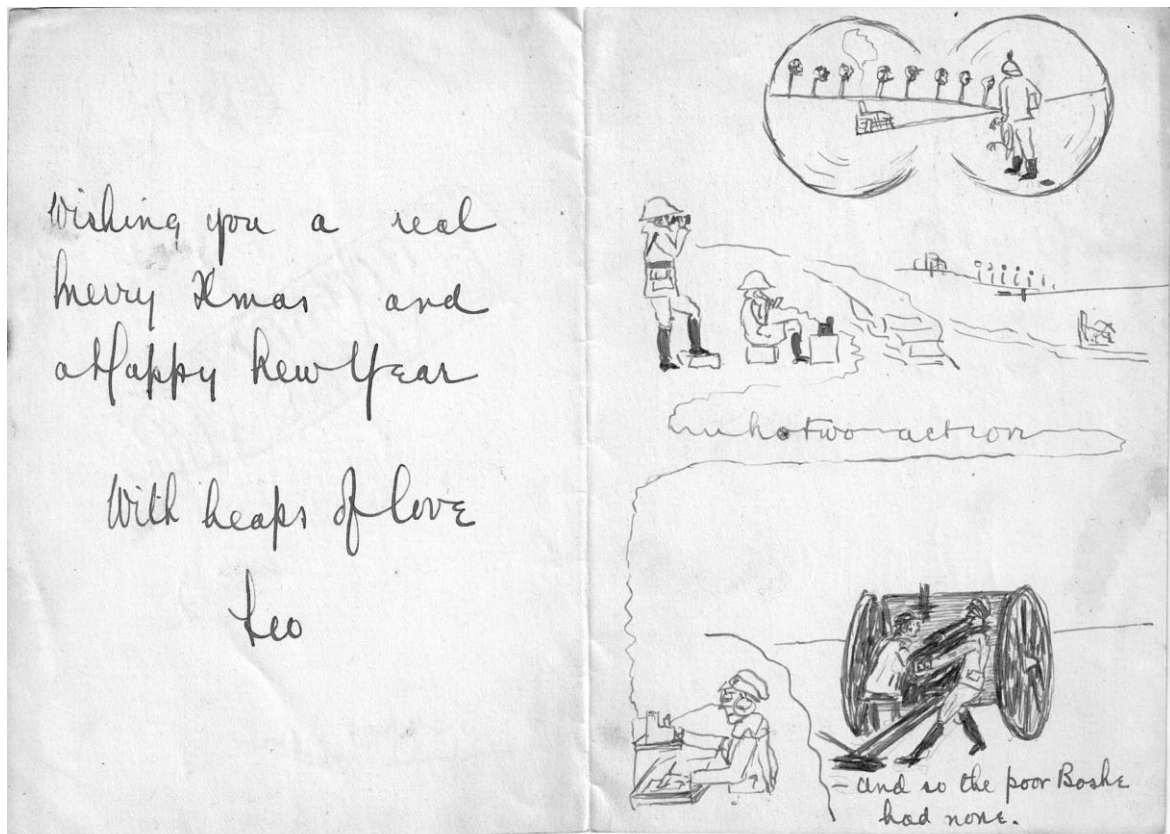 Wishing you a real
Merry Xmas and
a Happy New Year
With heaps of love
Leo
No two action
– and so the poor Boshe
had none.